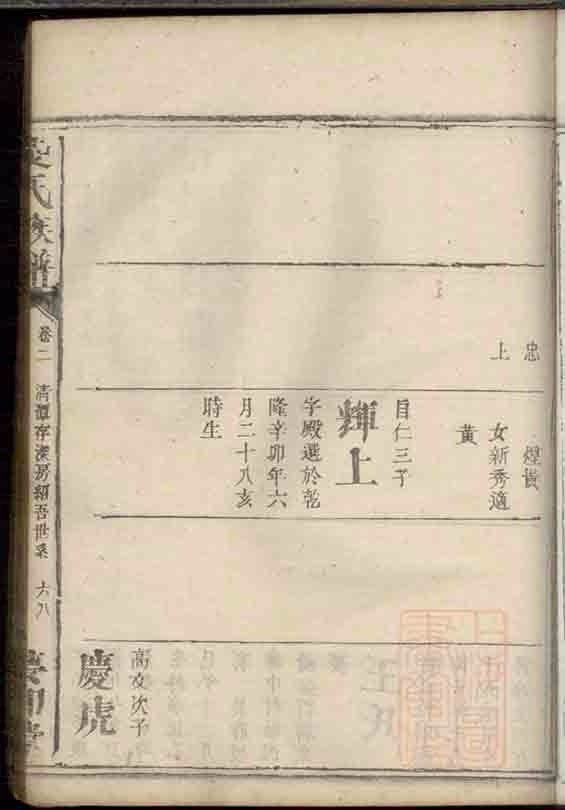 忠
上
煌貴
女新秀適
黃
自仁三子
輝上
字殿選於乾
隆辛卯年六
月二十八亥
時生
高友次子
慶虎
氏族譜
卷二
清潭存深房紹吾世系
六八